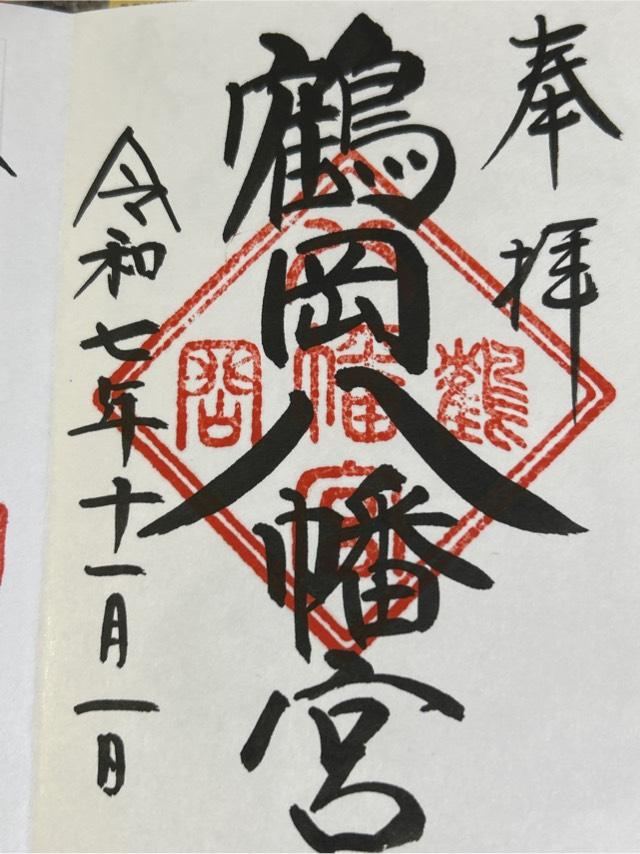 奉拝
鶴岡八幡宮
令和七年十一月一日
鶴
八幡宮
岡